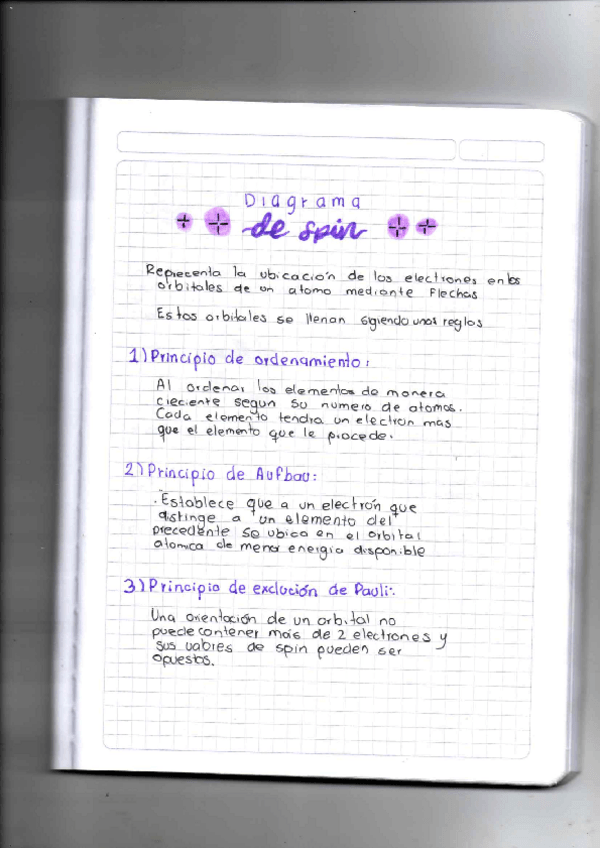 Diagrama
de spin
Reprecenta la ubicación de los electrones en los
orbitales de un atomo mediante Flechas
Estos orbitales se llenan sigiendo unas reglas
1) Principio de ordenamiento:
Al ordenar los elementos de manera
creciente segun su numero de atomos.
Cada elemento tendra un electron mas
que el elemento que le procede.
2) Principio de Aufbau:
. Establece que a un electrón que
distinge a un elemento del
precedente se ubica en el orbital
atomica de menor energia disponible
3) Principio de exclución de Pauli:.
Una orientación de un orbital no
puede contener más de 2 electrones y
sus valores de spin pueden ser
opuestos.